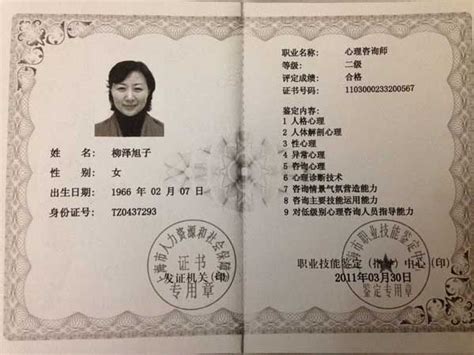 姓　　名： 柳泽旭子
性　　别： 女
出生日期： 1966 年 02 月 07 日
身份证号： TZ0437293
上海市人力资源和社会保障局
证书
专用章
发证机关(印)
职业名称： 心理咨询师
等级： 二级
评定成绩： 合格
证书号码： 1103000233200567
鉴定内容：
1 人格心理
2 人体解剖心理
3 性心理
4 异常心理
5 咨询心理
6 心理诊断技术
7 咨询情景气氛营造能力
8 咨询主要技能运用能力
9 对低级别心理咨询人员指导能力
上海市职业技能鉴定
职业技能鉴定（指导）中心（印）
2011年03月30日
鉴定专用章